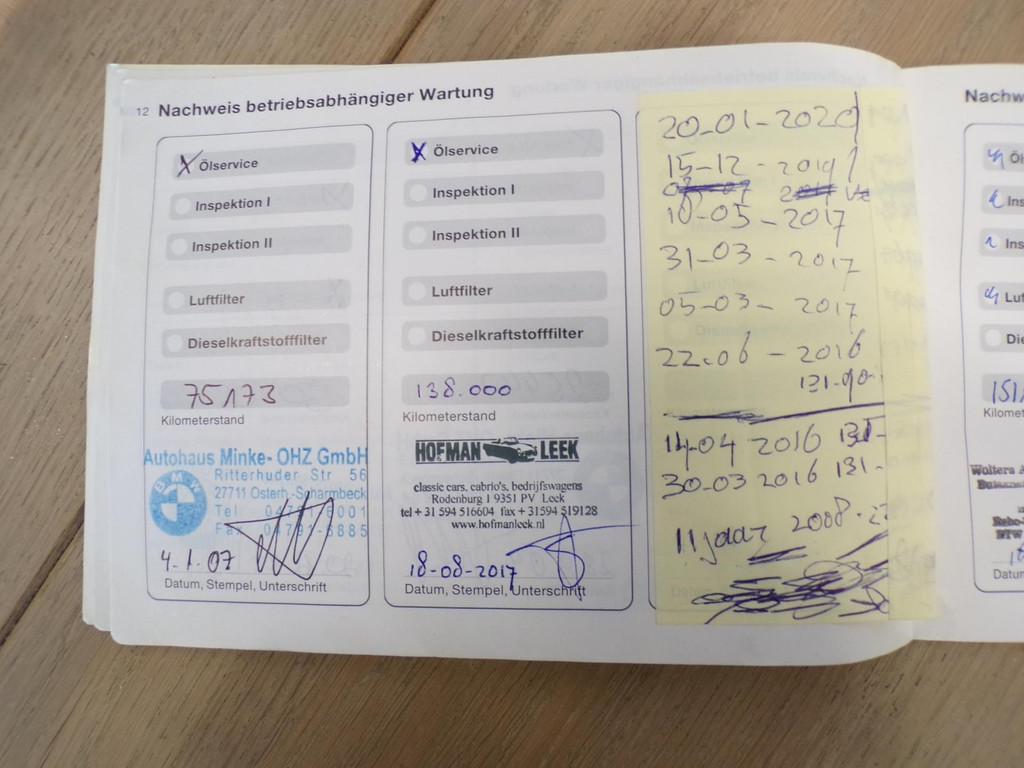 12 Nachweis betriebsabhängiger Wartung
X Ölservice
Inspektion I
Inspektion II
Luftfilter
Dieselkraftstofffilter
75173
Kilometerstand
Autohaus Minke- OHZ GmbH
BMW
Ritterhuder Str 56
27711 Osterh.-Scharmbeck
Tel
Fax
4.1.07
Datum, Stempel, Unterschrift
X Ölservice
Inspektion I
Inspektion II
Luftfilter
Dieselkraftstofffilter
138.000
Kilometerstand
HOFMAN LEEK
classic cars, cabrio's, bedrijfswagens
Rodenburg 1 9351 PV Leek
tel +31 594 516604 fax +31594 519128
www.hofmanleek.nl
18-08-2017
Datum, Stempel, Unterschrift
20-01-2020
15-12-2019
10-05-2017
31-03-2017
05-03-2017
22.06-2016
14-04 2016 131-
30-03 2016 131-
11 jaar 2008-
Nachw
Öl
Ins
Ins
Luf
Die
151
Kilomet
Wolters A
Datum